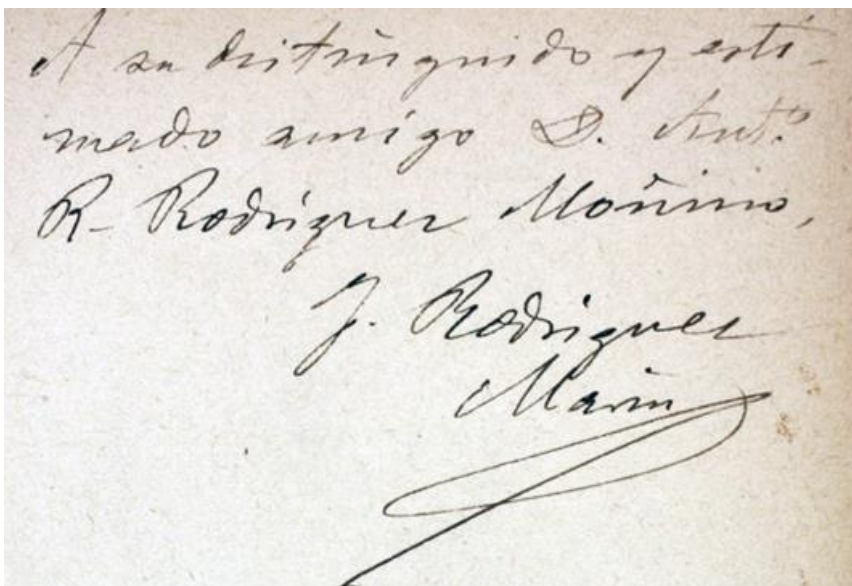 A su distinguido y esti-
mado amigo D. Antº
R. Rodríguez Moñino,
F. Rodríguez
Marín